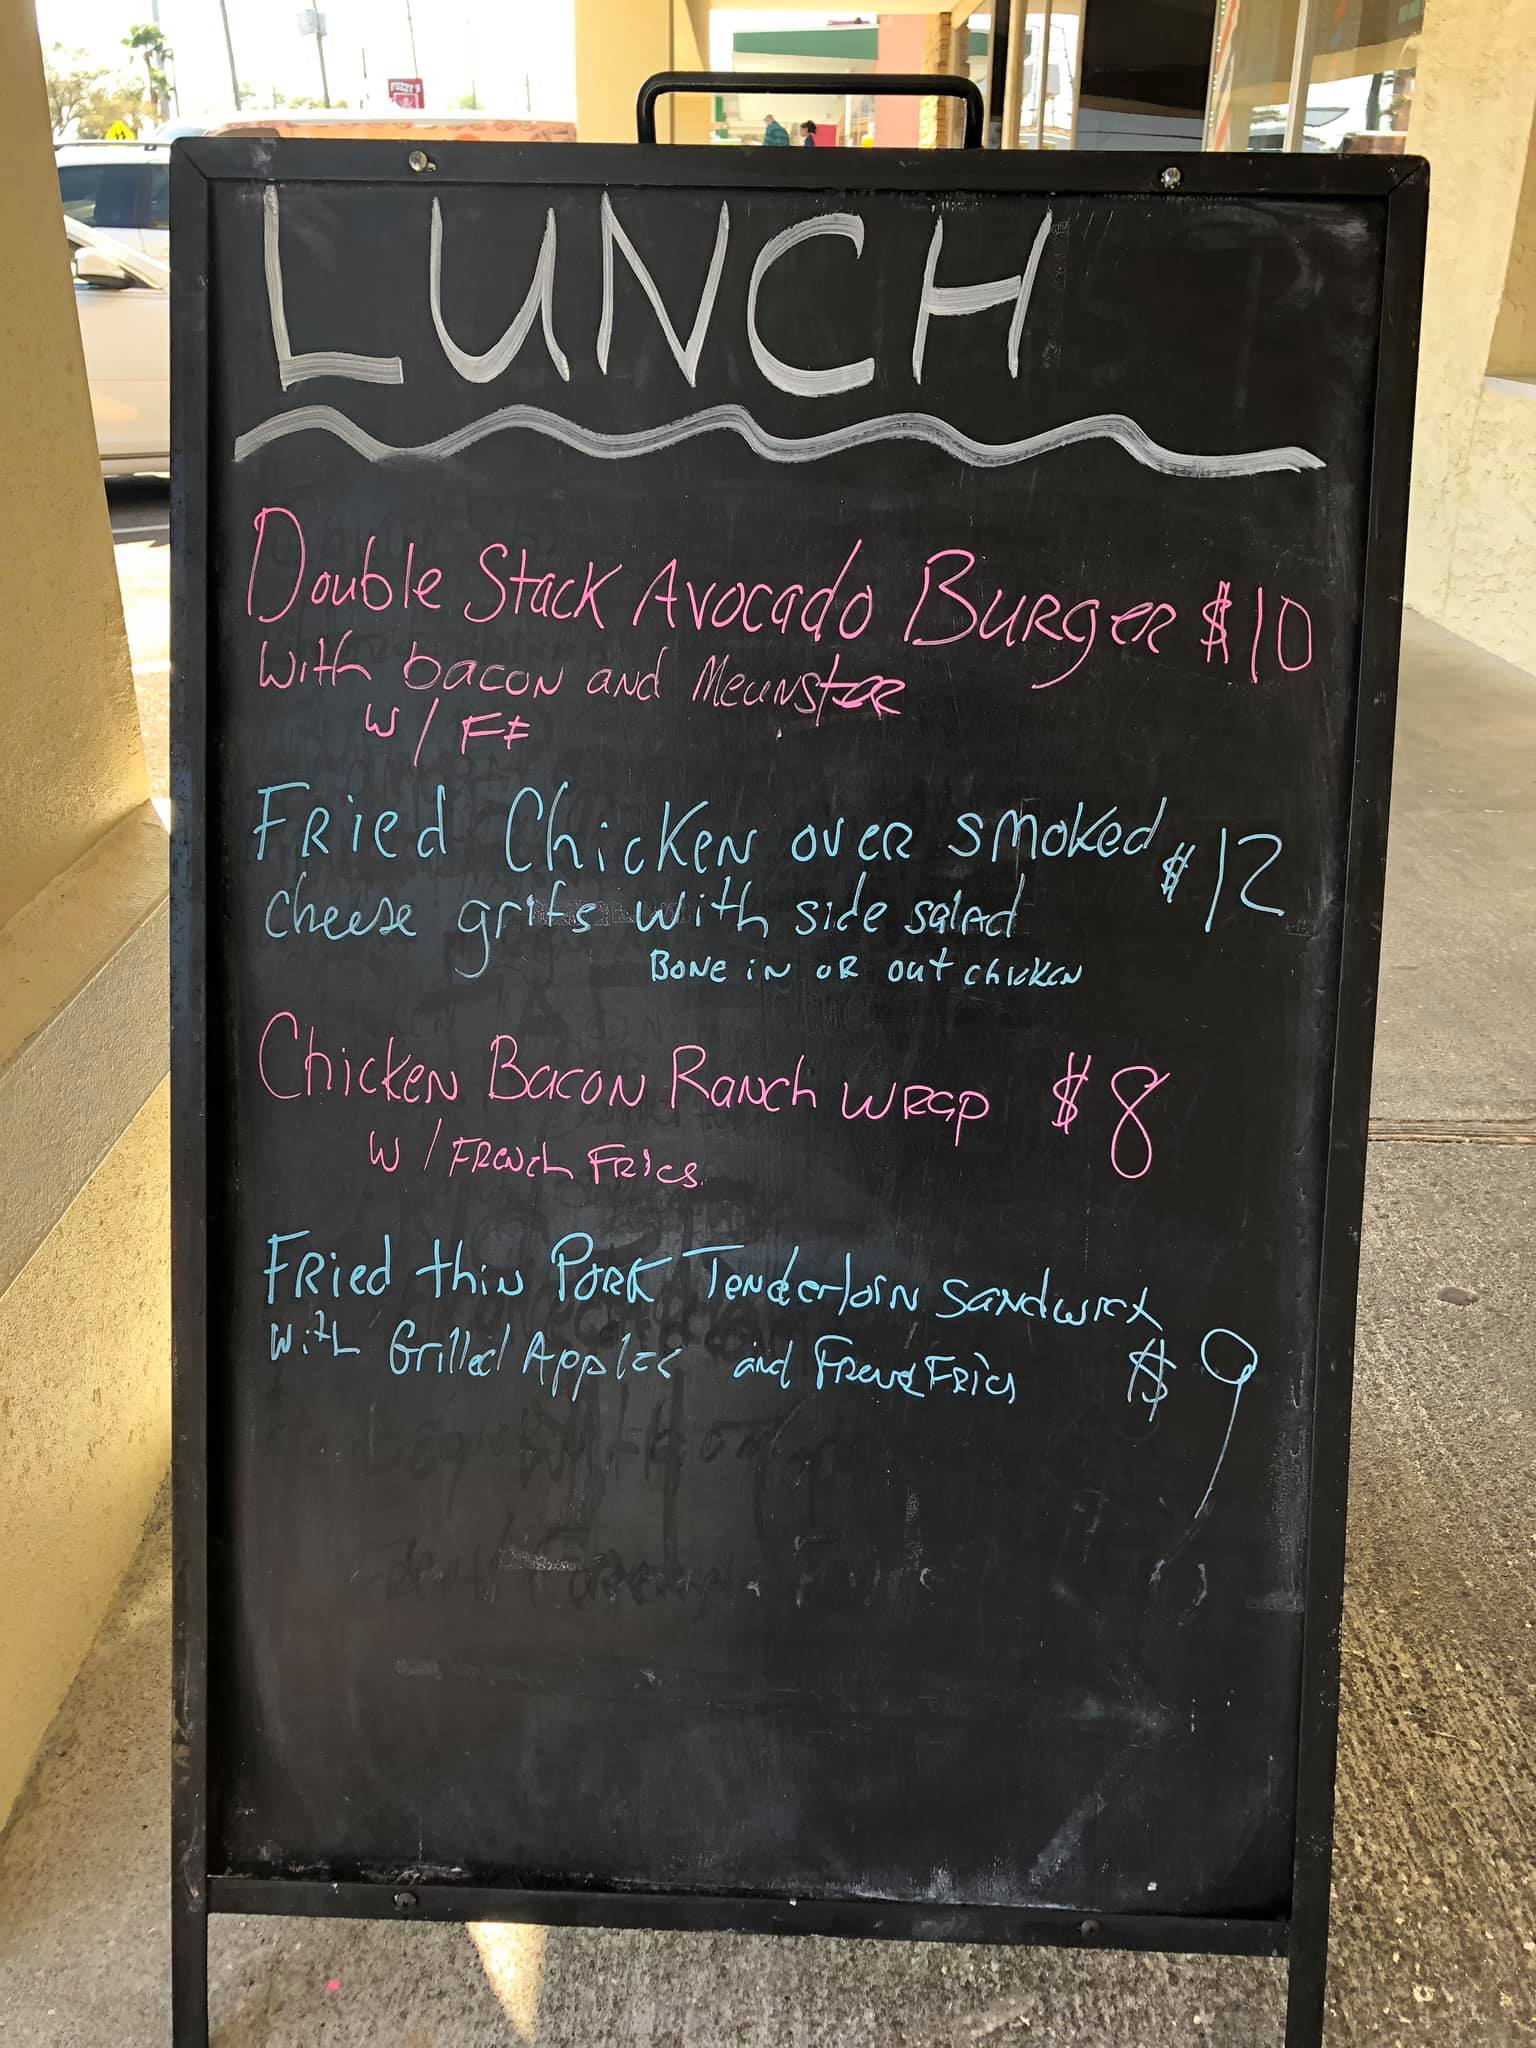 FUZZY'S
LUNCH
Double Stack Avocado Burger $10
with bacon and Meunster
w/ FF
Fried Chicken over smoked $12
cheese grits with side salad
Bone in or out chicken
Chicken Bacon Ranch wrap $8
w/ French Fries
Fried thin Pork Tenderloin Sandwich
with Grilled Apples and French Fries $9